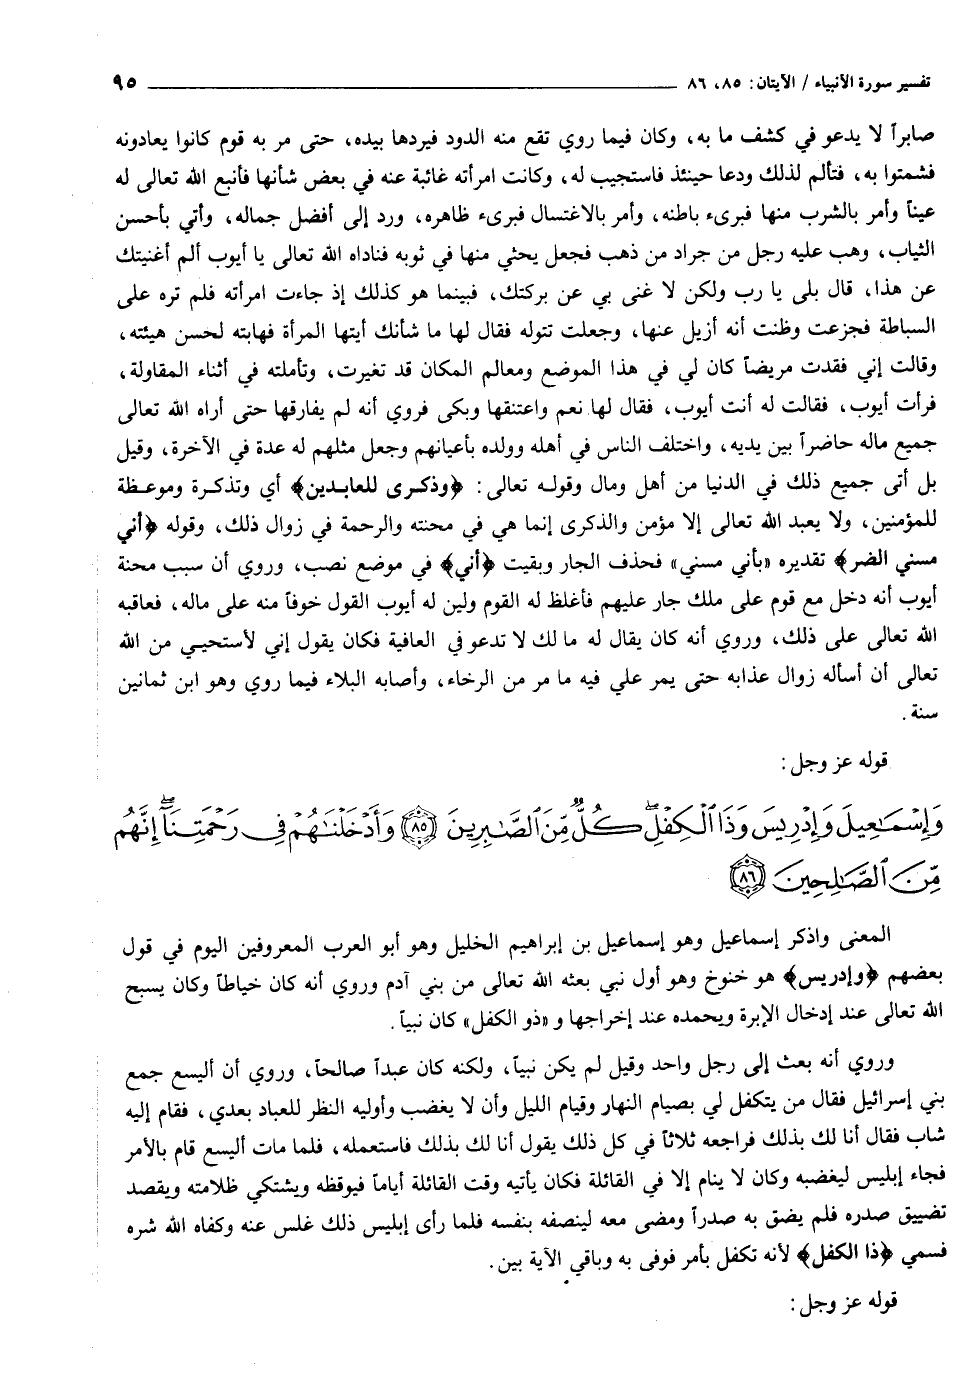 تفسير سورة الأنبياء / الآيتان: ٨٥، ٨٦ ٩٥
صابراً لا يدعو في كشف ما به، وكان فيما روي تقع منه الدود فيردها بيده، حتى مر به قوم كانوا يعادونه
فشمتوا به، فتألم لذلك ودعا حينئذ فاستجيب له، وكانت امرأته غائبة عنه في بعض شأنها فأنبع الله تعالى له
عيناً وأمر بالشرب منها فبرىء باطنه، وأمر بالاغتسال فبرىء ظاهره، ورد إلى أفضل جماله، وأتي بأحسن
الثياب، وهب عليه رجل من جراد من ذهب فجعل يحثي منها في ثوبه فناداه الله تعالى يا أيوب ألم أغنيتك
عن هذا، قال بلى يا رب ولكن لا غنى بي عن بركتك، فبينما هو كذلك إذ جاءت امرأته فلم تره على
السباطة فجزعت وظنت أنه أزيل عنها، وجعلت تتوله فقال لها ما شأنك أيتها المرأة فهابته لحسن هيئته،
وقالت إني فقدت مريضاً كان لي في هذا الموضع ومعالم المكان قد تغيرت، وتأملته في أثناء المقاولة،
فرأت أيوب، فقالت له أنت أيوب، فقال لها نعم واعتنقها وبكى فروي أنه لم يفارقها حتى أراه الله تعالى
جميع ماله حاضراً بين يديه، واختلف الناس في أهله وولده بأعيانهم وجعل مثلهم له عدة في الآخرة، وقيل
بل أتى جميع ذلك في الدنيا من أهل ومال وقوله تعالى: ﴿وذكرى للعابدين﴾ أي وتذكرة وموعظة
للمؤمنين، ولا يعبد الله تعالى إلا مؤمن والذكرى إنما هي في محنته والرحمة في زوال ذلك، وقوله ﴿أني
مسني الضر﴾ تقديره «بأني مسني» فحذف الجار وبقيت ﴿أني﴾ في موضع نصب، وروي أن سبب محنة
أيوب أنه دخل مع قوم على ملك جار عليهم فأغلظ له القوم ولين له أيوب القول خوفاً منه على ماله، فعاقبه
الله تعالى على ذلك، وروي أنه كان يقال له ما لك لا تدعو في العافية فكان يقول إني لأستحيي من الله
تعالى أن أسأله زوال عذابه حتى يمر علي فيه ما مر من الرخاء، وأصابه البلاء فيما روي وهو ابن ثمانين
سنة.
قوله عز وجل:
وَإِسْمَٰعِيلَ وَإِدْرِيسَ وَذَا ٱلْكِفْلِ ۖ كُلٌّ مِّنَ ٱلصَّٰبِرِينَ ٨٥ وَأَدْخَلْنَٰهُمْ فِى رَحْمَتِنَآ ۖ إِنَّهُم
مِّنَ ٱلصَّٰلِحِينَ ٨٦
المعنى واذكر إسماعيل وهو إسماعيل بن إبراهيم الخليل وهو أبو العرب المعروفين اليوم في قول
بعضهم ﴿وإدريس﴾ هو خنوخ وهو أول نبي بعثه الله تعالى من بني آدم وروي أنه كان خياطاً وكان يسبح
الله تعالى عند إدخال الإبرة ويحمده عند إخراجها و «ذو الكفل» كان نبياً.
وروي أنه بعث إلى رجل واحد وقيل لم يكن نبياً، ولكنه كان عبداً صالحاً، وروي أن أليسع جمع
بني إسرائيل فقال من يتكفل لي بصيام النهار وقيام الليل وأن لا يغضب وأوليه النظر للعباد بعدي، فقام إليه
شاب فقال أنا لك بذلك فراجعه ثلاثاً في كل ذلك يقول أنا لك بذلك فاستعمله، فلما مات أليسع قام بالأمر
فجاء إبليس ليغضبه وكان لا ينام إلا في القائلة فكان يأتيه وقت القائلة أياماً فيوقظه ويشتكي ظلامته ويقصد
تضييق صدره فلم يضق به صدراً ومضى معه لينصفه بنفسه فلما رأى إبليس ذلك غلس عنه وكفاه الله شره
فسمي ﴿ذا الكفل﴾ لأنه تكفل بأمر فوفى به وباقي الآية بين.
قوله عز وجل: